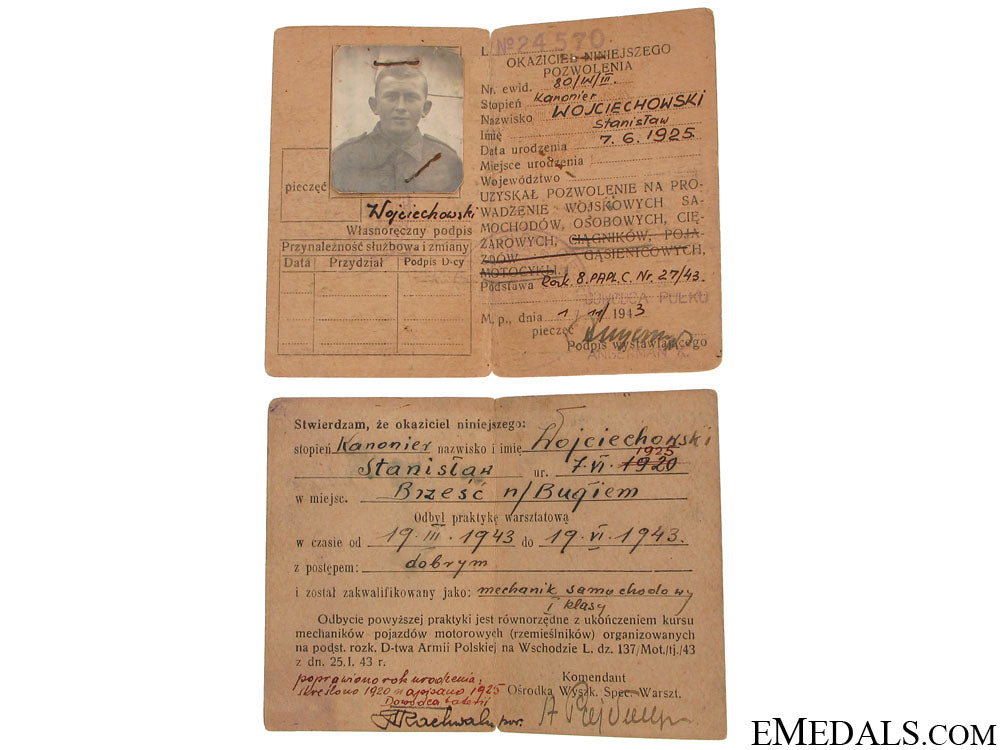 pieczęć
Wojciechowski
Własnoręczny podpis
Przynależność służbowa i zmiany
Data Przydział Podpis D-cy
L № 24570
OKAZICIEL NINIEJSZEGO
POZWOLENIA
Nr. ewid. 80/W/III.
Stopień Kanonier
Nazwisko WOJCIECHOWSKI
Imię Stanisław
Data urodzenia 7.6.1925
Miejsce urodzenia
Województwo
UZYSKAŁ POZWOLENIE NA PRO-
WADZENIE WOJSKOWYCH SA-
MOCHODÓW, OSOBOWYCH, CIĘ-
ŻAROWYCH, CIĄGNIKÓW, POJA-
ZDÓW GĄSIENICOWYCH,
MOTOCYKLI.
Podstawa Rozk. 8. PAPL. C. Nr. 27/43.
DOWÓDCA PUŁKU
M. p., dnia 1/11/1943
pieczęć
Podpis wystawiającego
Stwierdzam, że okaziciel niniejszego:
stopień Kanonier nazwisko i imię Wojciechowski
Stanisław ur. 7.VI. 1920 1925
w miejsc. Brześć n/Bugiem
Odbył praktykę warsztatową
w czasie od 19.III.1943 do 19.VI.1943.
z postępem: dobrym
i został zakwalifikowany jako: mechanik samochodowy
I klasy
Odbycie powyższej praktyki jest równorzędne z ukończeniem kursu
mechaników pojazdów motorowych (rzemieślników) organizowanych
na podst. rozk. D-twa Armii Polskiej na Wschodzie L. dz. 137/Mot./tj./43
z dn. 25.I. 43 r.
poprawiono rok urodzenia:
skreślono 1920 napisano 1925
Dowódca baterii
Komendant
Ośrodka Wyszk. Spec. Warszt.
EMEDALS.COM